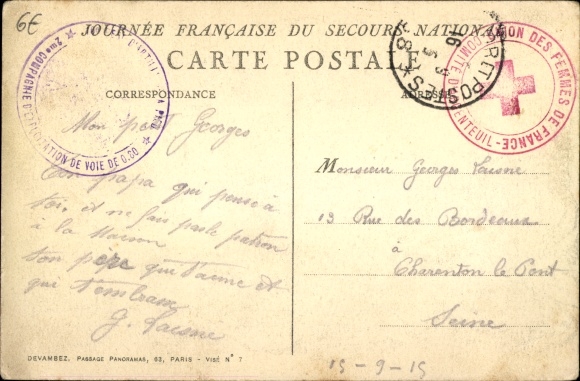 6€
JOURNÉE FRANÇAISE DU SECOURS NATIONAL
CARTE POSTALE
CORRESPONDANCE
ADRESSE
2me COMPAGNIE D'EXPLOITATION DE VOIE DE 0.60
TRÉSOR ET POSTES
16 - 9
UNION DES FEMMES DE FRANCE
COMITÉ D'ARGENTEUIL
Mon petit Georges
Ton papa qui pense à
toi, et ne fais pas le patron
à la Maison
ton père qui t'aime et
qui t'embrasse
G. Laisne
Monsieur Georges Laisne
13 Rue des Bordeaux
à
Charenton le Pont
Seine
DEVAMBEZ, PASSAGE PANORAMAS, 63, PARIS - VISÉ N° 7
15-9-15